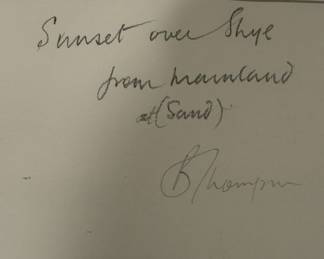 Sunset over Skye
from mainland
at (Sand).
B Thompson